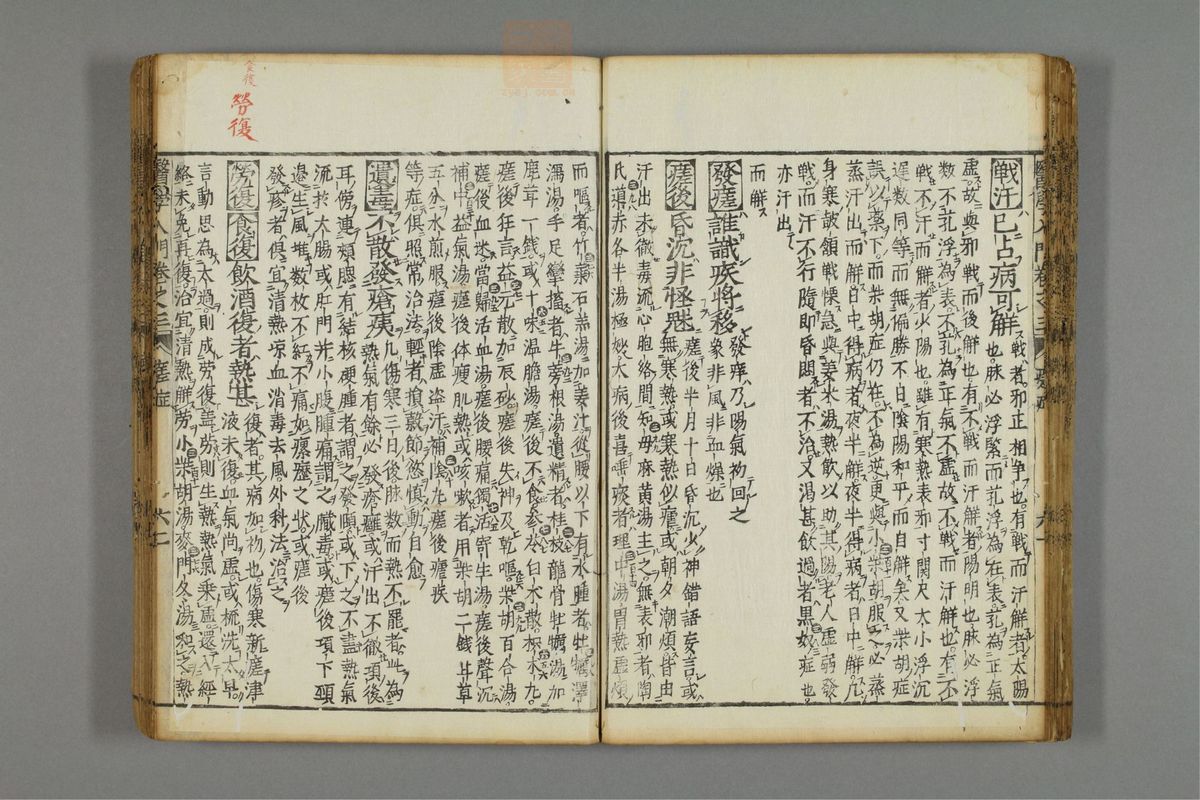 戰汗已占病可解戰者邪正相爭也有戰而汗解者太陽
也脉必浮緊而芤浮為在表芤為正氣
虛故與邪戰而後解也有不戰而汗解者陽明也脉必浮
數不芤浮為表不芤為正氣不虛故不戰而汗解也有不
戰不汗而解者少陽也雖有寒熱表邪寸關尺大小浮沉
遲数同等而無偏勝不日陰陽和平而自解矣又柴胡症
誤以藥下而柴胡症仍在不為逆更與小柴胡服之必蒸
蒸汗出而解日中得病者夜半解夜半得病者日中解凡
身寒皷頷戰慄急與姜米湯熱飲以助其陽老人虛弱發
戰而汗不行隨即昏悶者不治又渴甚飲過者黒奴症也
亦汗出
而解
發瘥誰識疾將移發痒乃陽氣初回之
象非風非血燥也
瘥後昏沉非怪魅瘥後半月十日昏沉少神錯語妄言或
無寒熱或寒熱似瘧或朝夕潮煩皆由
汗出未徹毒流心胞絡間知母麻黄湯主之無表邪者陶
氏導赤各半湯極妙大病後喜唾痰者理中湯胃熱虛煩
而嘔者竹葉石羔湯加姜汁從腰以下有水腫者牡蠣澤
瀉湯手足攣搐者牛蒡根湯遺精者桂枝龍骨牡蠣湯加
鹿茸一錢或十味温膽湯瘥後不食參苓白朮散枳朮丸
瘥後狂言益元散加辰砂瘥後失神及乾嘔柴胡百合湯
瘥後血迷當歸活血湯瘥後腰痛獨活寄生湯瘥後聲沉
補中益氣湯瘥後体瘦肌熱或咳嗽者用柴胡二錢甘草
五分水煎服瘥後陰虛盗汗補陰丸瘥後瘧疾
等症俱照常治法輕者損穀節慾慎動自愈
遺毒不散發瘡痍凡傷寒三日後脉数而熱不罷者此為
熱氣有餘必發瘡癰或汗出不徹項後
耳傍連頰腮有結核硬腫者謂之發頤或下之不盡熱氣
流於大腸或肛門并小腹腫痛謂之臓毒或瘥後項下頸
邊生風堆数枚不紅不痛如瘰癧之状或瘥後
發疹者俱宜清熱凉血消毒去風外科法治之
勞復食復飲酒復者熱甚復者其病如初也傷寒新瘥津
液未復血氣尚虛或梳洗太早
言動思為太過則成勞復盖勞則生熱熱氣乘虛還入經
絡未免再復治宜清熱解勞小柴胡湯麥門冬湯和之熱
醫學入門卷之三
瘥症
六十
食復
勞復